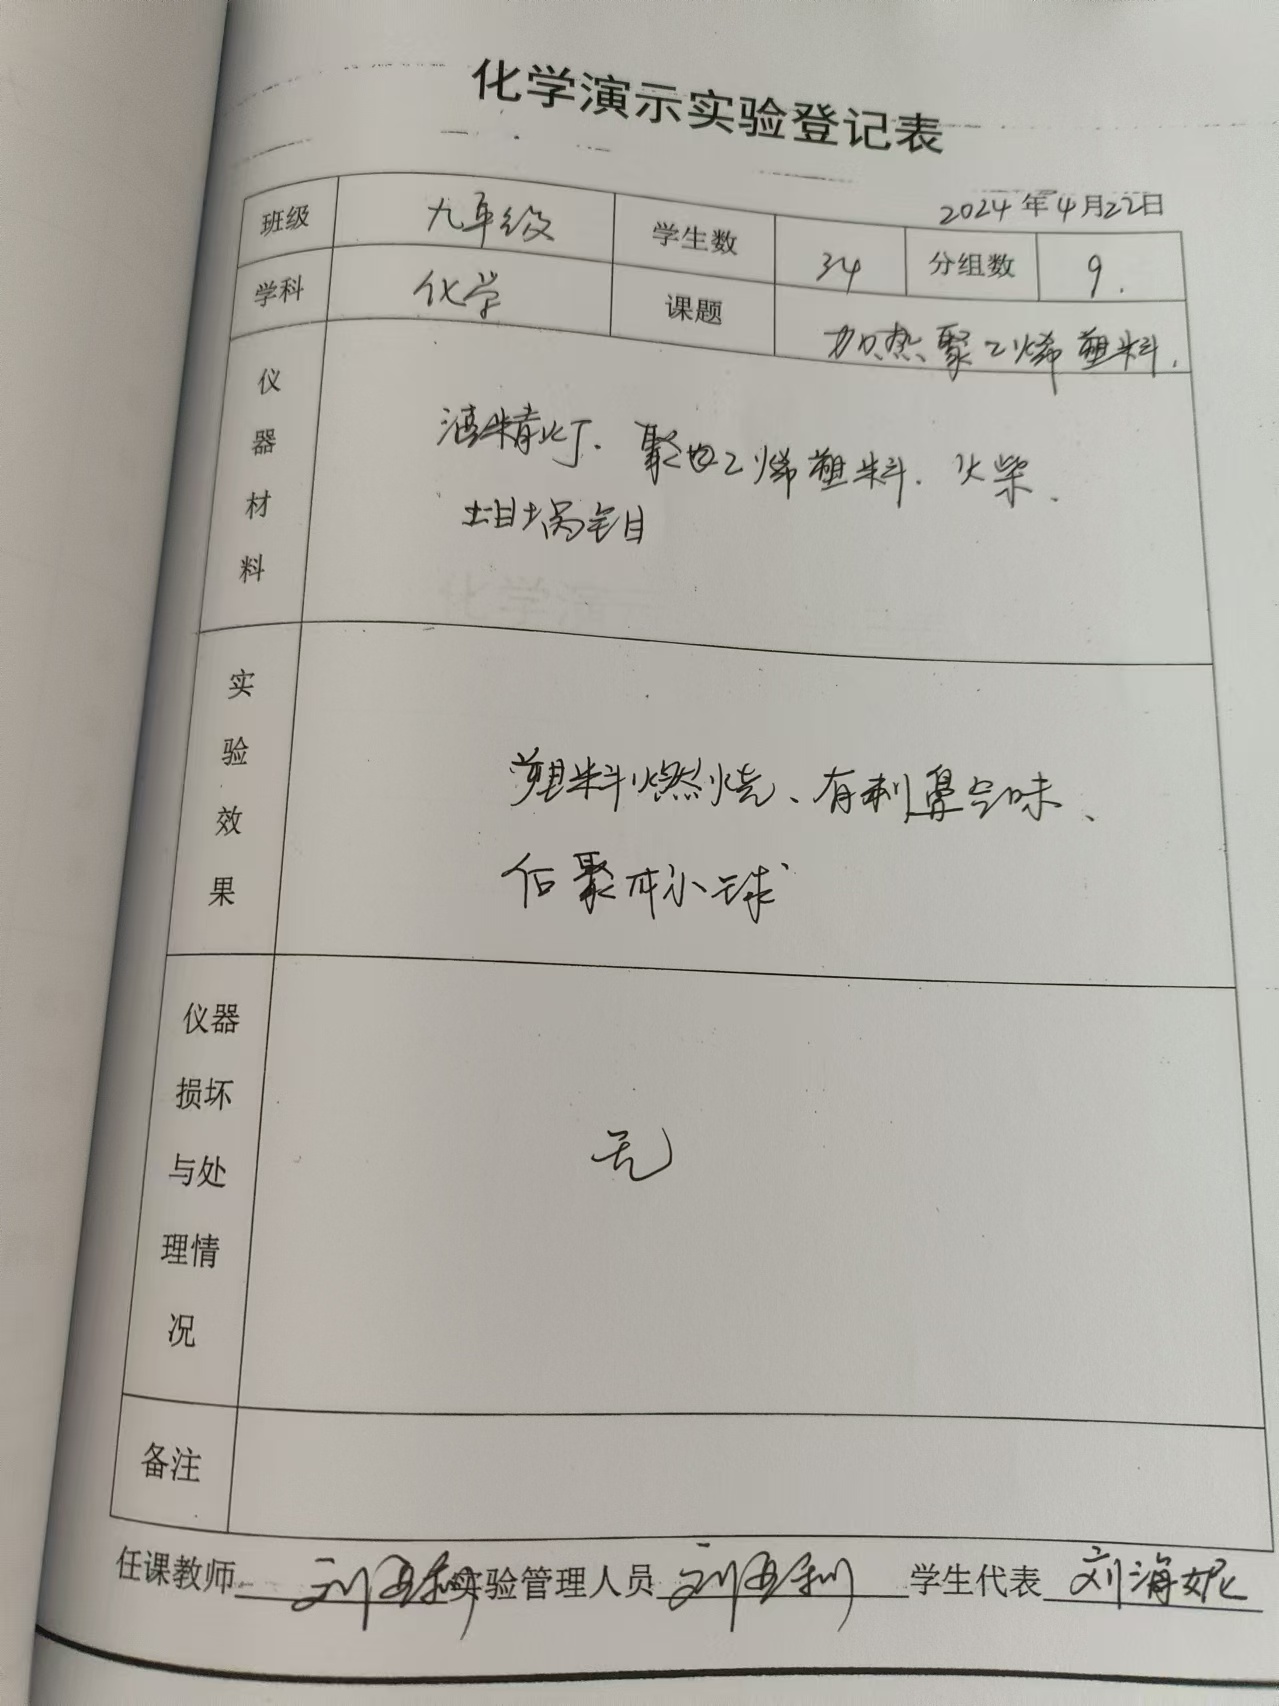 化学演示实验登记表
2024年4月22日
班级 九年级 学生数 34 分组数 9.
学科 化学 课题 加热聚乙烯塑料.
仪器材料 酒精灯、聚乙烯塑料、火柴、
坩埚钳
实验效果 塑料燃烧、有刺鼻气味、
后聚成小球
仪器损坏与处理情况 无
备注
任课教师 实验管理人员 学生代表 刘海妮